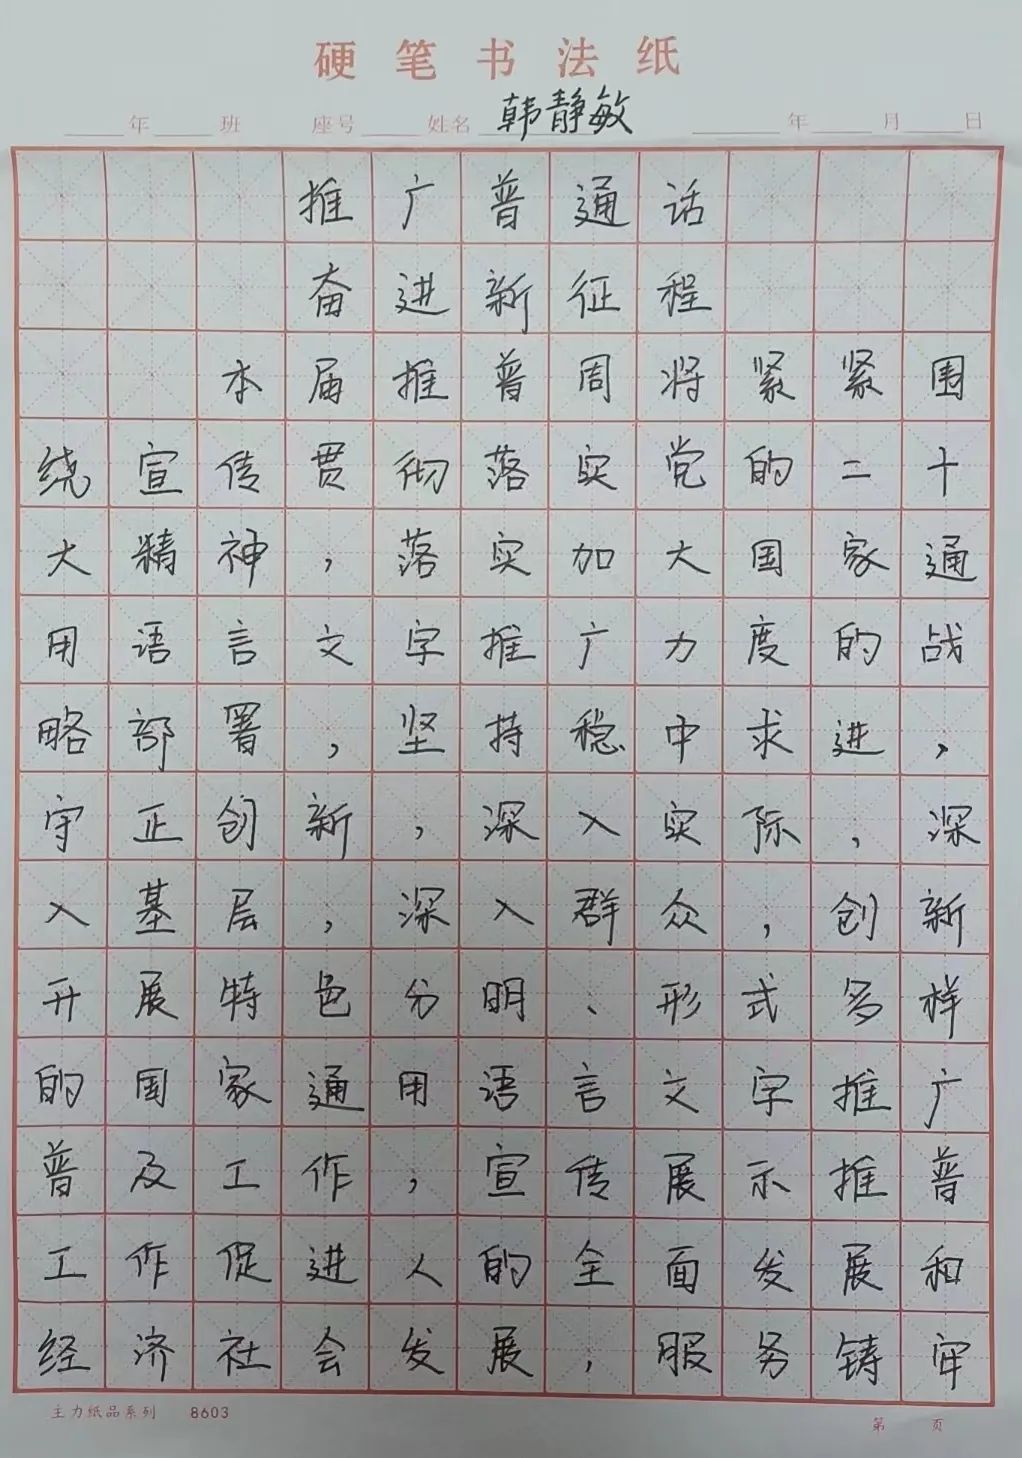 硬笔书法纸
年 班 座号 姓名 韩静敏 年 月 日
推广普通话
奋进新征程
本届推普周将紧紧围
绕宣传贯彻落实党的二十
大精神，落实加大国家通
用语言文字推广力度的战
略部署，坚持稳中求进，
守正创新，深入实际，深
入基层，深入群众，创新
开展特色分明、形式多样
的国家通用语言文字推广
普及工作，宣传展示推普
工作促进人的全面发展和
经济社会发展，服务铸牢
主力纸品系列 8603
第 页